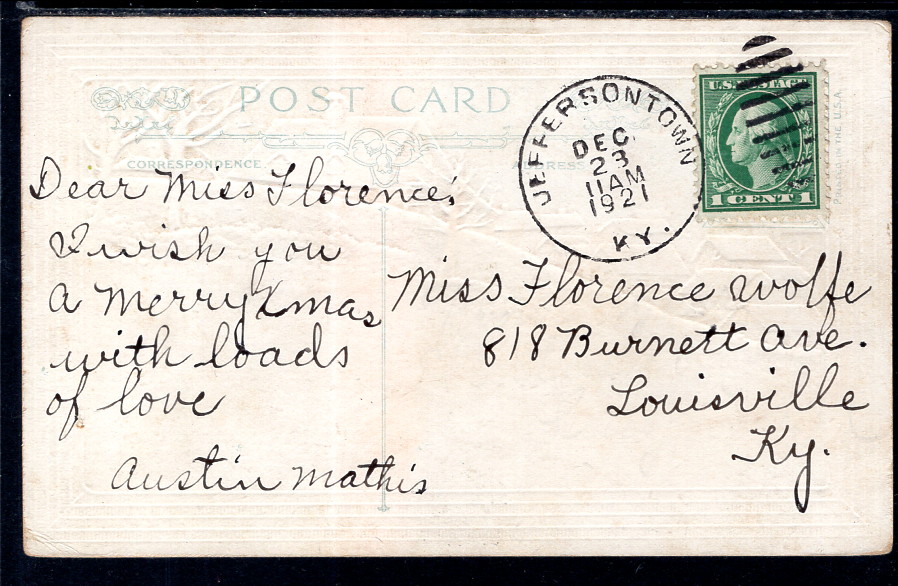 POST CARD
CORRESPONDENCE
ADDRESS
JEFFERSONTOWN
DEC
23
11AM
1921
KY.
U.S. POSTAGE
1 CENT 1
Dear Miss Florence:
I wish you
a Merry Xmas
with loads
of love
Austin Mathis
Miss Florence Wolfe
818 Burnett Ave.
Louisville
Ky.